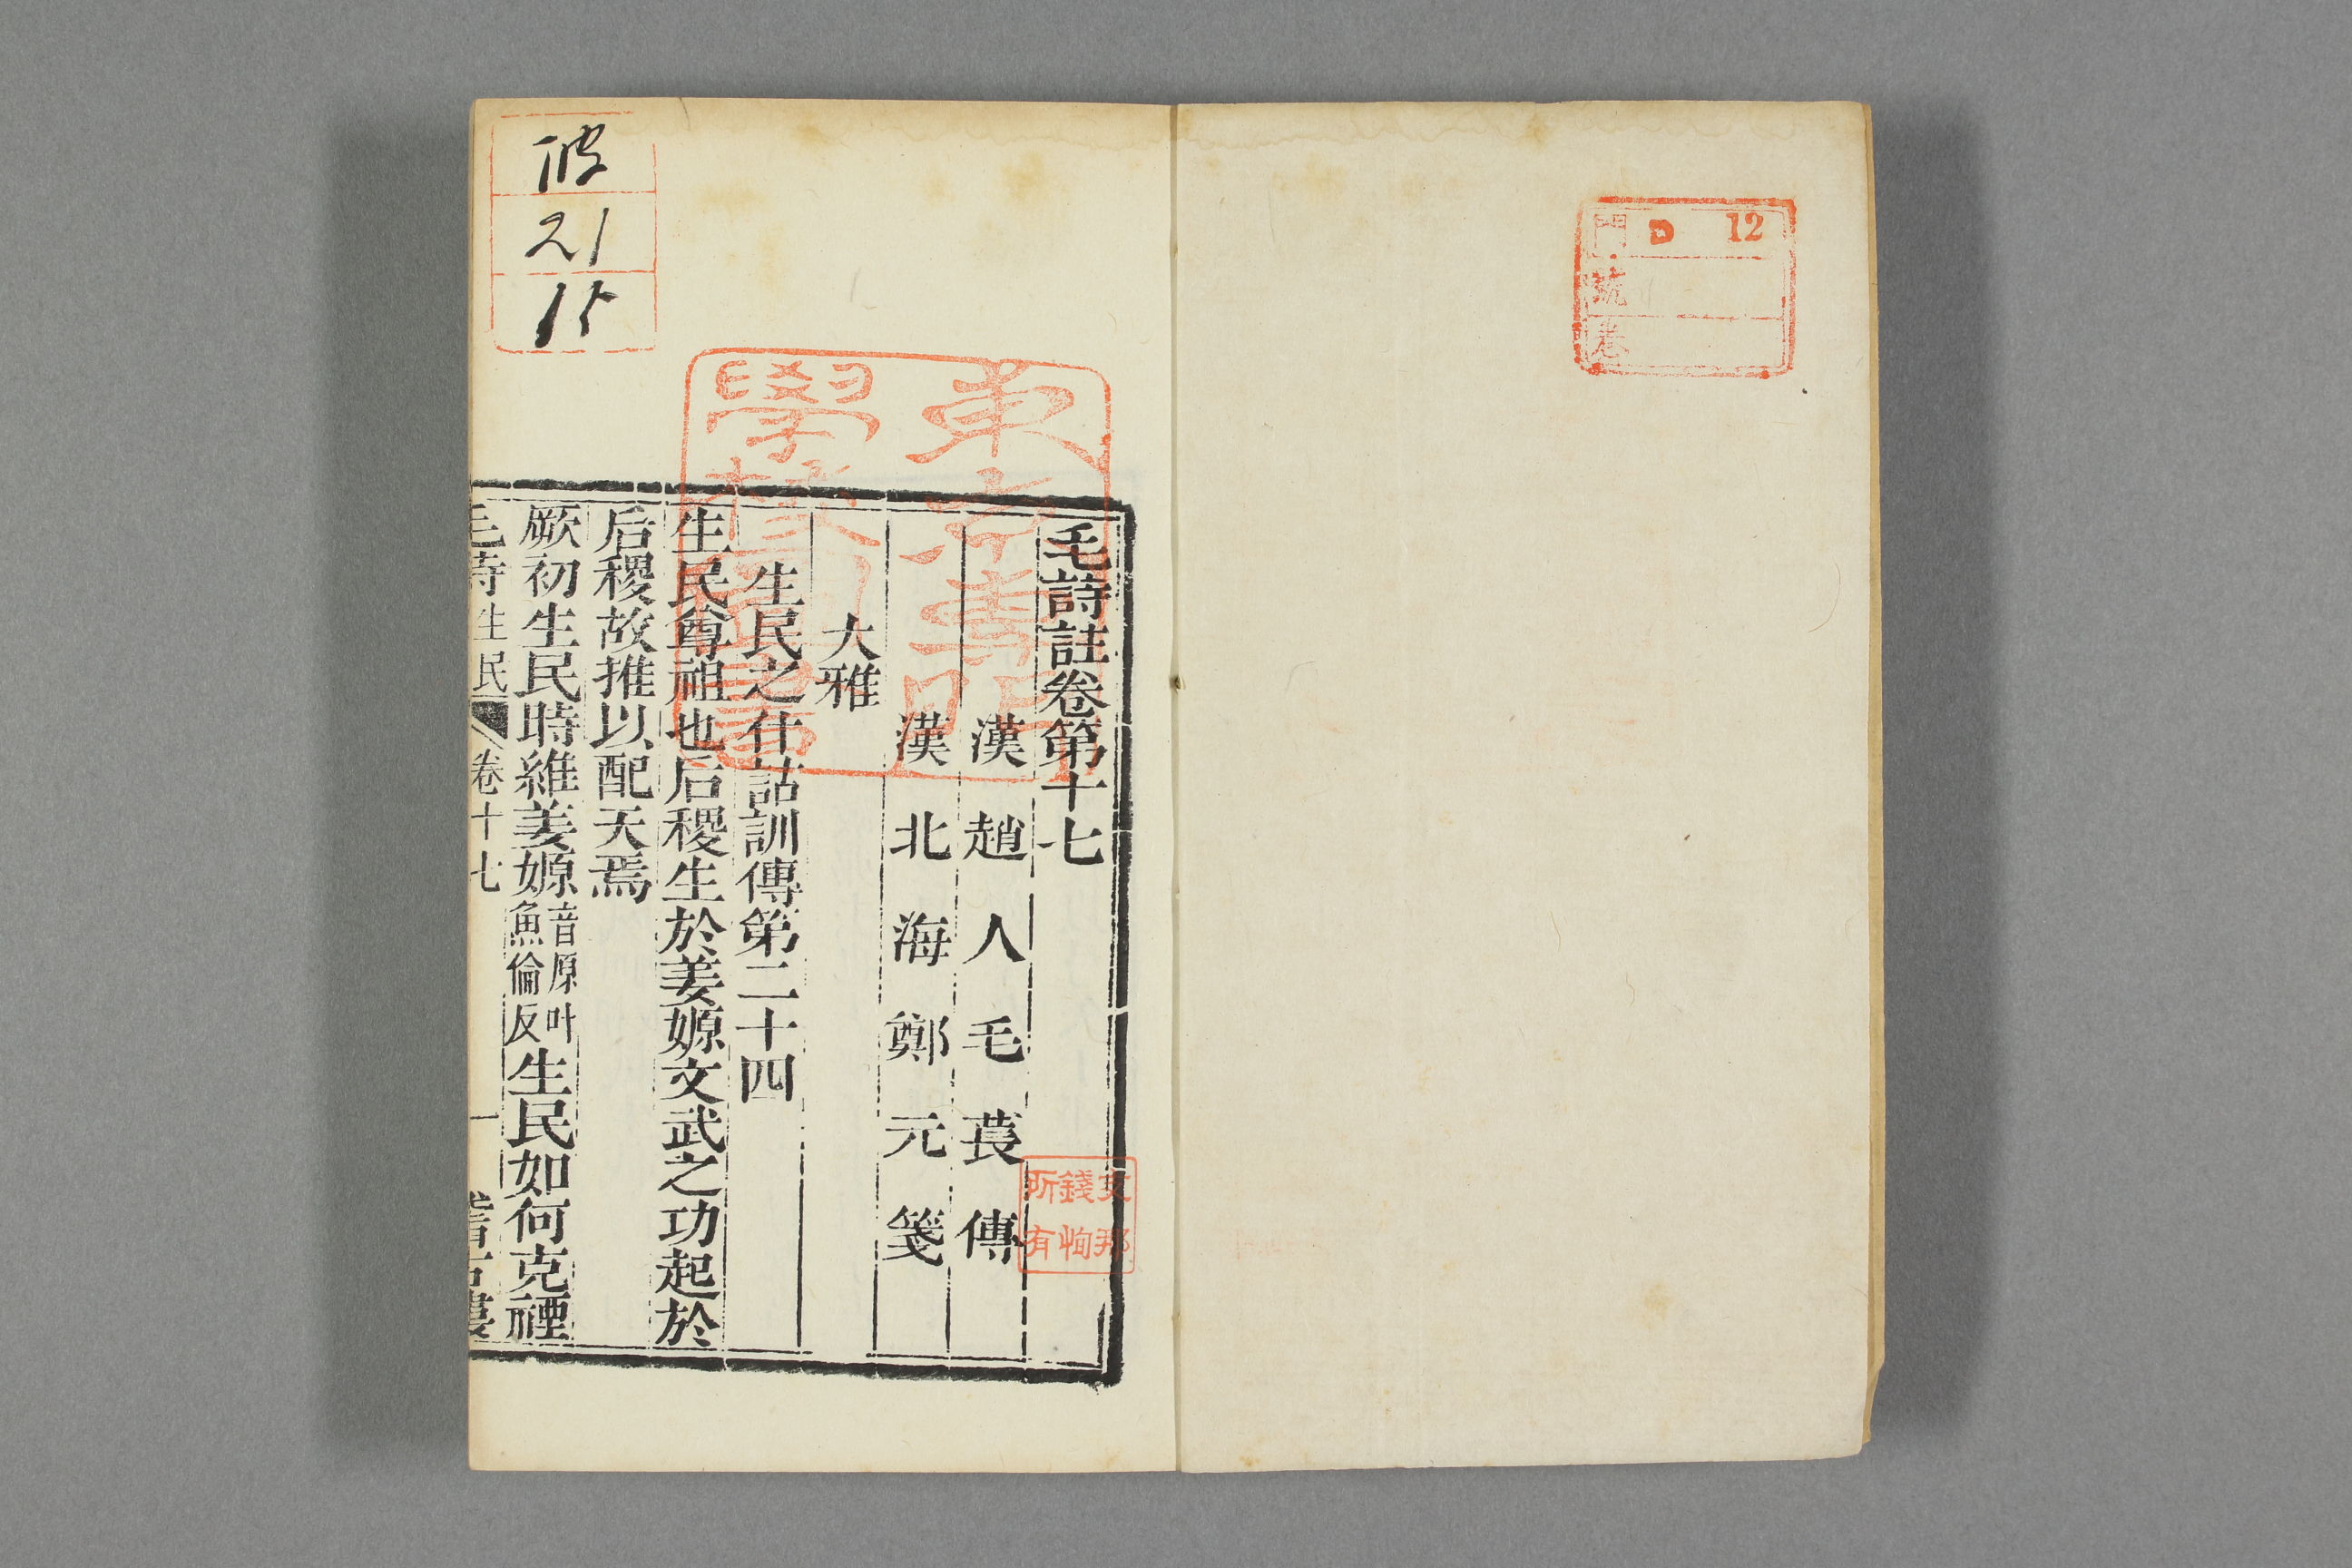 門 D 12
號
卷
毛詩註卷第十七
漢趙人毛萇傳
漢北海鄭元箋
大雅
生民之什詁訓傳第二十四
生民尊祖也后稷生於姜嫄文武之功起於
后稷故推以配天焉
厥初生民時維姜嫄音原叶魚倫反生民如何克禋
毛詩生民 卷十七 一 稽古樓
21
15
文那
錢恂
所有